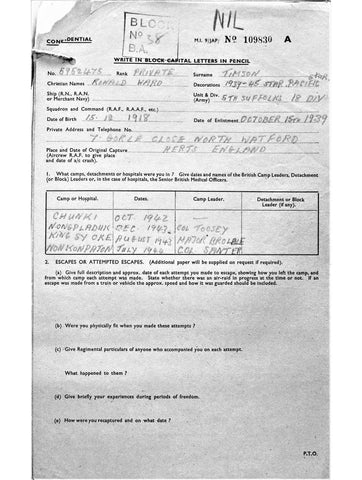 NIL
BLOCK
Nº 58
B.A.
CONFIDENTIAL
M.I. 9/JAP/ Nº 109830 A
WRITE IN BLOCK CAPITAL LETTERS IN PENCIL
No. 5952475 Rank PRIVATE Surname TIMSON
Christian Names RONALD WARD Decorations 1939-45 STAR PACIFIC STAR
Ship (R.N., R.A.N. or Merchant Navy) Unit & Div. (Army) 5TH SUFFOLKS 18 DIV
Squadron and Command (R.A.F., R.A.A.F., etc.)
Date of Birth 15-12 1918 Date of Enlistment OCTOBER 15TH 1939
Private Address and Telephone No.
7 GORLE CLOSE NORTH WATFORD
Place and Date of Original Capture HERTS ENGLAND
(Aircrew R.A.F. to give place
and date of a/c crash).
1. What camps, detachments or hospitals were you in ? Give dates and names of the British Camp Leaders, Detachment
(or Block) Leaders or, in the case of hospitals, the Senior British Medical Officers.
Camp or Hospital. Dates. Camp Leader. Detachment or Block Leader (if any).
CHUNKI OCT 1942
NONGPLADUK DEC. 1942 COL TOOSEY
KING SY OKE AUGUST 1943
NONKONPATEN JULY 1944
2. ESCAPES OR ATTEMPTED ESCAPES. (Additional paper will be supplied on request if required).
(a) Give full description and approx. date of each attempt you made to escape, showing how you left the camp, and
from which camp each attempt was made. State whether there was an air-raid in progress at the time or not. If an
escape was made from a train or vehicle the approx. speed and how it was guarded should be included.
(b) Were you physically fit when you made these attempts ?
(c) Give Regimental particulars of anyone who accompanied you on each attempt.
What happened to them ?
(d) Give briefly your experiences during periods of freedom.
(e) How were you recaptured and on what date ?
P.T.O.